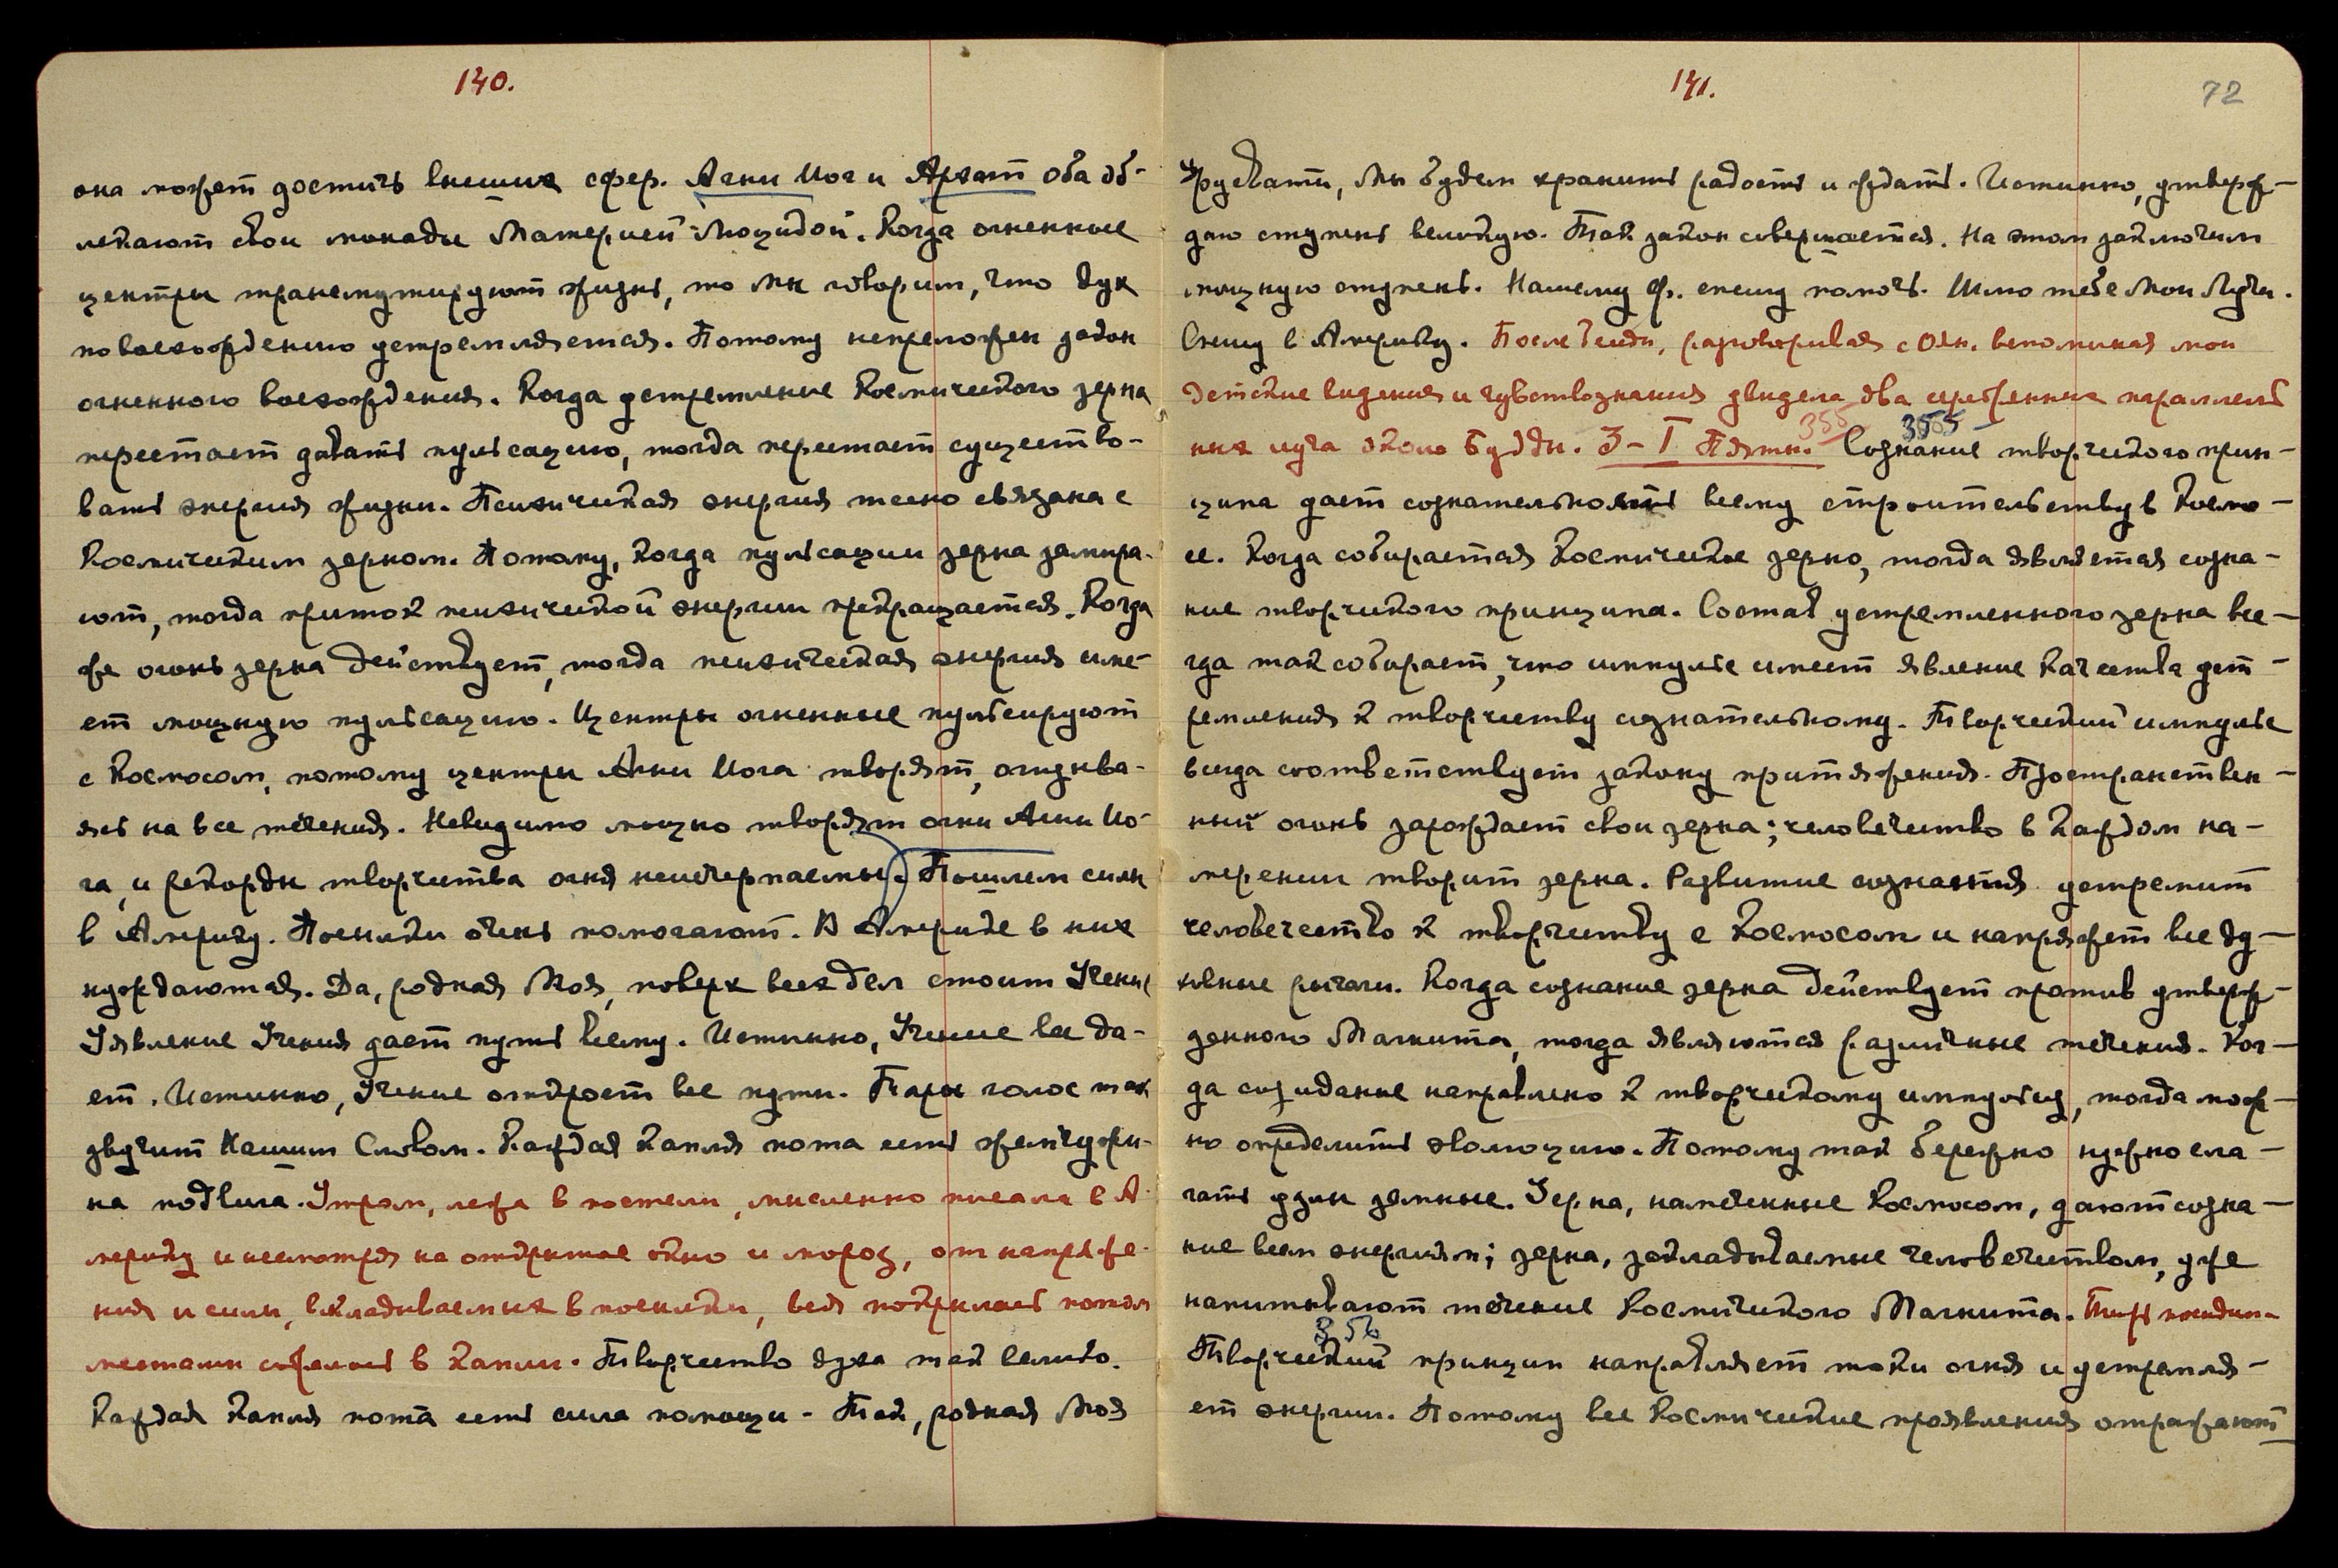 140.
она может достичь внешних сфер. Агни Йог и Архат оба об-
лекают свои монады Материей-Люцидой. Когда огненные
центры трансмутируют жизнь, то Мы говорим, что дух
по восхождению устремляется. Потому непреложен закон
огненного восхождения. Когда устремление Космического зерна
перестает давать пульсацию, тогда перестает существо-
вать энергия жизни. Психическая энергия тесно связана с
Космическим зерном. Потому, когда пульсации зерна замира-
ют, тогда приток психической энергии прекращается. Когда
же огонь зерна действует, тогда психическая энергия име-
ет мощную пульсацию. Центры огненные пульсируют
с Космосом, потому центры Агни Йога творят, отзыва-
ясь на все течения. Невидимо мощно творят огни Агни Йо-
га, и рекорды творчества огня неисчерпаемы. Пошлем силы
в Америку. Посылки очень помогают. В Америке в них
нуждаются. Да, родная Моя, поверх всех дел стоит Учение
Уявление Учения дает путь всему. Истинно, Учение все да-
ет. Истинно, Учение откроет все пути. Тары голос так
звучит Нашим Словом. Каждая капля пота есть жемчужи-
на подвига. Утром, лежа в постели, мысленно писала в А-
мерику и несмотря на открытое окно и мороз, от напряже-
ния и силы, вкладываемых в посылки, вся покрылась потом
местами собрались в капли. Творчество духа так велико.
Каждая капля пота есть сила помощи - Так, родная Моя
141.
72
Урусвати, Мы будем хранить радость и ждать. Истинно, утверж-
даю ступень великую. Так закон совершается. На этом заключим
мощную ступень. Нашему Ф. спешу помочь. Шлю тебе Мои Лучи.
Спешу в Америку. После беседы, разговаривая с Оян. вспоминая мои
детские видения и чувствознания увидела два серебренных параллель
ных луча около Будды. 3-I Пятн. 355 355 Сознание творческого прин-
ципа дает сознательность всему строительству в Космо-
се. Когда собирается Космическое зерно, тогда является созна-
ние творческого принципа. Состав устремленного зерна все-
гда так собирает, что импульс имеет явление качества уст-
ремления к творчеству сознательному. Творческий импульс
всегда соответствует закону притяжения. Пространствен-
ный огонь зарождает свои зерна; человечество в каждом на-
мерении творит зерна. Развитие сознания устремит
человечество к творчеству с Космосом и напряжет все ду-
ховные рычаги. Когда сознание зерна действует против утверж-
денного Магнита, тогда являются различные течения. Ког-
да созидание направлено к творческому импульсу, тогда мож-
но определить эволюцию. Потому так бережно нужно сла-
гать узлы земные. Зерна, намеченные Космосом, дают созна-
ние всем энергиям; зерна, закладываемые человечеством, уже
напитывают течение Космического Магнита.
356
Творческий принцип направляет токи огня и устремля-
ет энергии. Потому все Космические проявления отражают